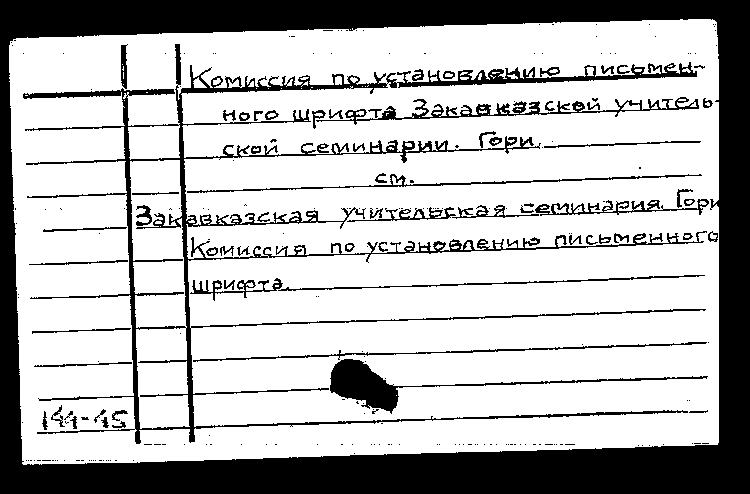 Комиссия по установлению письмен-
ного шрифта Закавказской учитель-
ской семинарии. Гори.
см.
Закавказская учительская семинария. Гори
Комиссия по установлению письменного
шрифта.
144-45